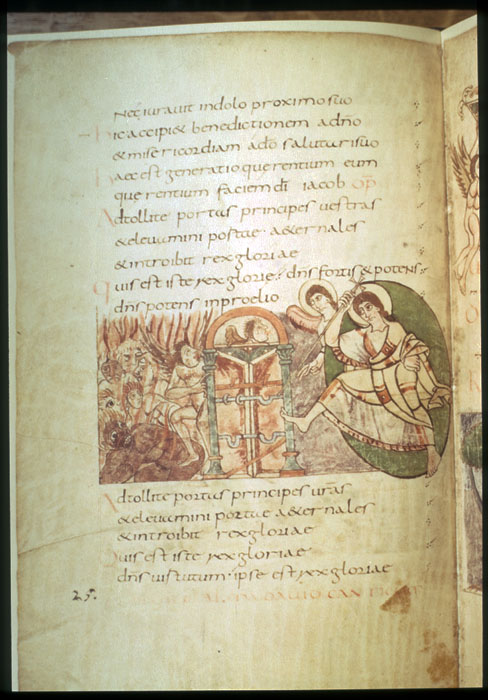 Nec iuravit indolo proximo suo
hic accipi& benedictionem adño
& misericordiam adõ salutari suo
haec est generatio querentium eum
querentium faciem dī iacob
Adtollite portas principes vestras
& elevamini portae · a&ernales
& introibit rex gloriae
quis est iste rex glorie · dñs fortis & potens
dñs potens in proelio
Adtollite portas principes vrās
& elevamini portae a&ernales
& introibit rex gloriae
Quis est iste rex gloriae
dñs virtutum · ipse est rex gloriae
25.